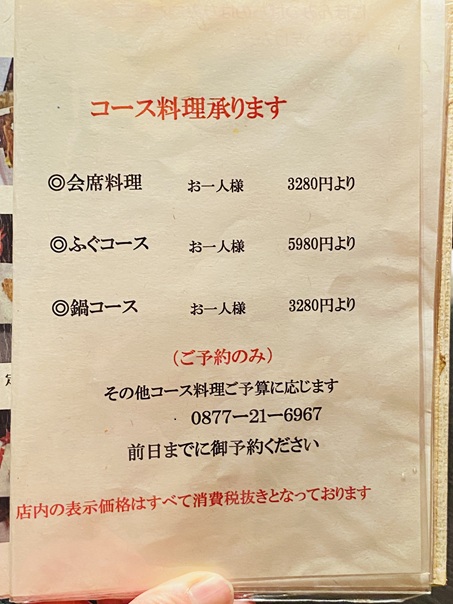 コース料理承ります
◎会席料理 お一人様 3280円より
◎ふぐコース お一人様 5980円より
◎鍋コース お一人様 3280円より
（ご予約のみ）
その他コース料理ご予算に応じます
0877ー21ー6967
前日までに御予約ください
店内の表示価格はすべて消費税抜きとなっております
定